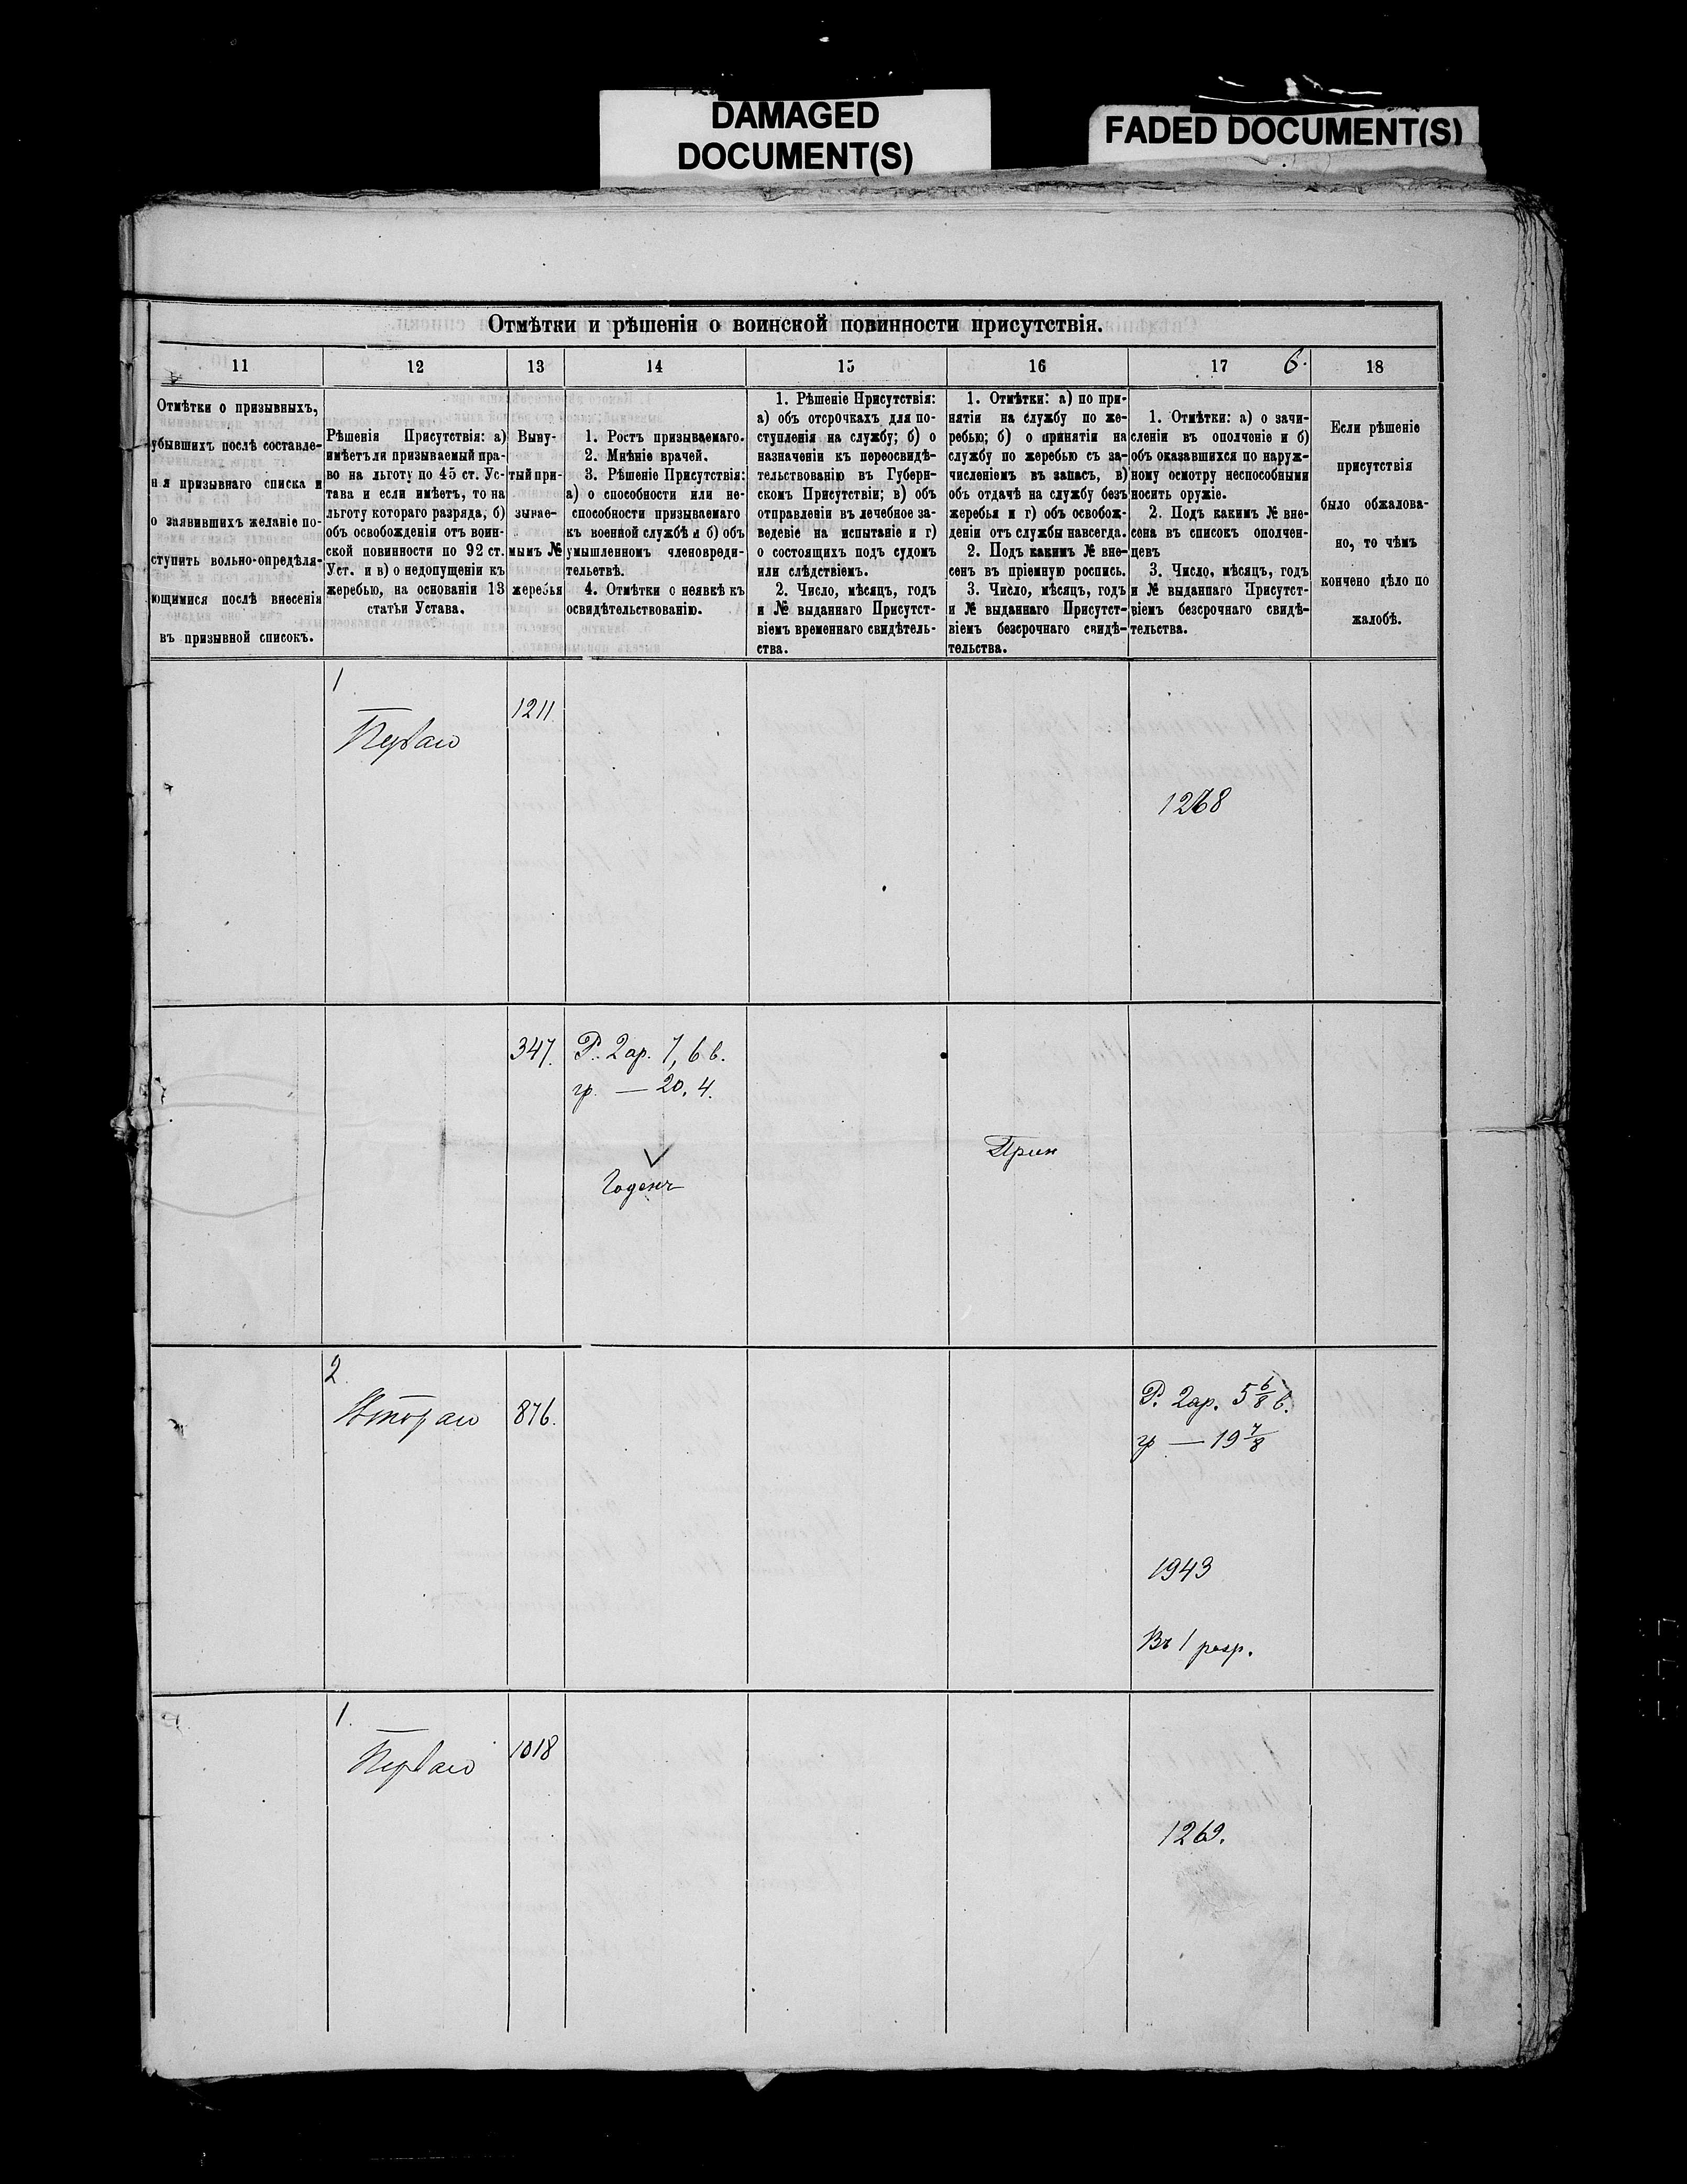 DAMAGED
DOCUMENT(S)
FADED DOCUMENT(S)
Отмѣтки и рѣшенія о воинской повинности присутствія.
11 12 13 14 15 16 17 6. 18
Отмѣтки о призывныхъ,
убывшихъ послѣ составле-
нія призывнаго списка и
о заявившихъ желаніе по-
ступить вольно-опредѣля-
ющимися послѣ внесенія
въ призывной списокъ.
Рѣшенія Присутствія: а)
имѣетъ ли призываемый пра-
во на льготу по 45 ст. Ус-
тава и если имѣетъ, то на
льготу котораго разряда, б)
объ освобожденіи отъ воин-
ской повинности по 92 ст.
Уст. и в) о недопущеніи къ
жеребью, на основаніи 13
статьи Устава.
Выну-
тый при-
зывае-
мымъ №
жеребья
1. Ростъ призываемаго.
2. Мнѣніе врачей.
3. Рѣшеніе Присутствія:
а) о способности или не-
способности призываемаго
къ военной службѣ и б) объ
умышленномъ членовреди-
тельствѣ.
4. Отмѣтки о неявкѣ къ
освидѣтельствованію.
1. Рѣшеніе Присутствія:
а) объ отсрочкахъ для по-
ступленія на службу; б) о
назначеніи къ переосвидѣ-
тельствованію въ Губерн-
скомъ Присутствіи; в) объ
отправленіи въ лечебное за-
веденіе на испытаніе и г)
о состоящихъ подъ судомъ
или слѣдствіемъ.
2. Число, мѣсяцъ, годъ
и № выданнаго Присутст-
віемъ временнаго свидѣтель-
ства.
1. Отмѣтки: а) по при-
нятіи на службу по же-
ребью; б) о принятіи на
службу по жеребью съ за-
численіемъ въ запасъ, в)
объ отдачѣ на службу безъ
жеребья и г) объ освобож-
деніи отъ службы навсегда.
2. Подъ какимъ № вне-
сенъ въ пріемную роспись.
3. Число, мѣсяцъ, годъ
и № выданнаго Присутст-
віемъ безсрочнаго свидѣ-
тельства.
1. Отмѣтки: а) о зачи-
сленіи въ ополченіе и б)
объ оказавшихся по наруж-
ному осмотру неспособными
носить оружіе.
2. Подъ какимъ № вне-
сена въ списокъ ополчен-
цевъ
3. Число, мѣсяцъ, годъ
и № выданнаго Присутст-
віемъ безсрочнаго свидѣ-
тельства.
Если рѣшеніе
присутствія
было обжалова-
но, то чѣмъ
кончено дѣло по
жалобѣ.
1
1211
Перваго
1268
347. Р. 2 ар. 7,6 в.
гр. — 20,4.
Прин
Годенъ
2
Втораго 876.
Р. 2 ар. 5 6/8 в.
гр — 19 7/8
1943
Въ 1 разр.
1.
Перваго 1018
1269.